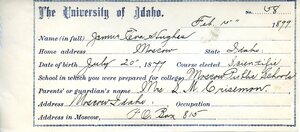 The University of Idaho.
No. 58
Feb. 1899
Name (in full) James Hughes
Home address Moscow State Idaho.
Date of birth July 20 1877 Course elected Scientific
School in which you were prepared for college Moscow Public Schools
Parents' or guardian's name Mrs S. M. Crisemon.
Address Moscow Idaho. Occupation
Address in Moscow, P.O. Box 815